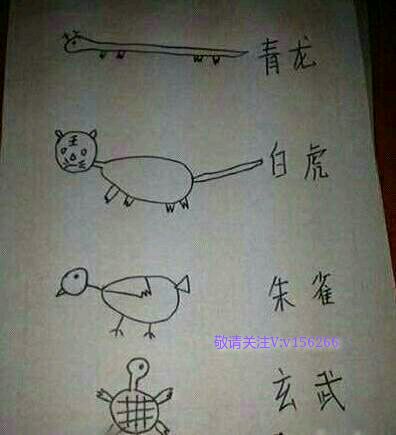 青龙
王
白虎
朱雀
敬请关注V:v156266
玄武